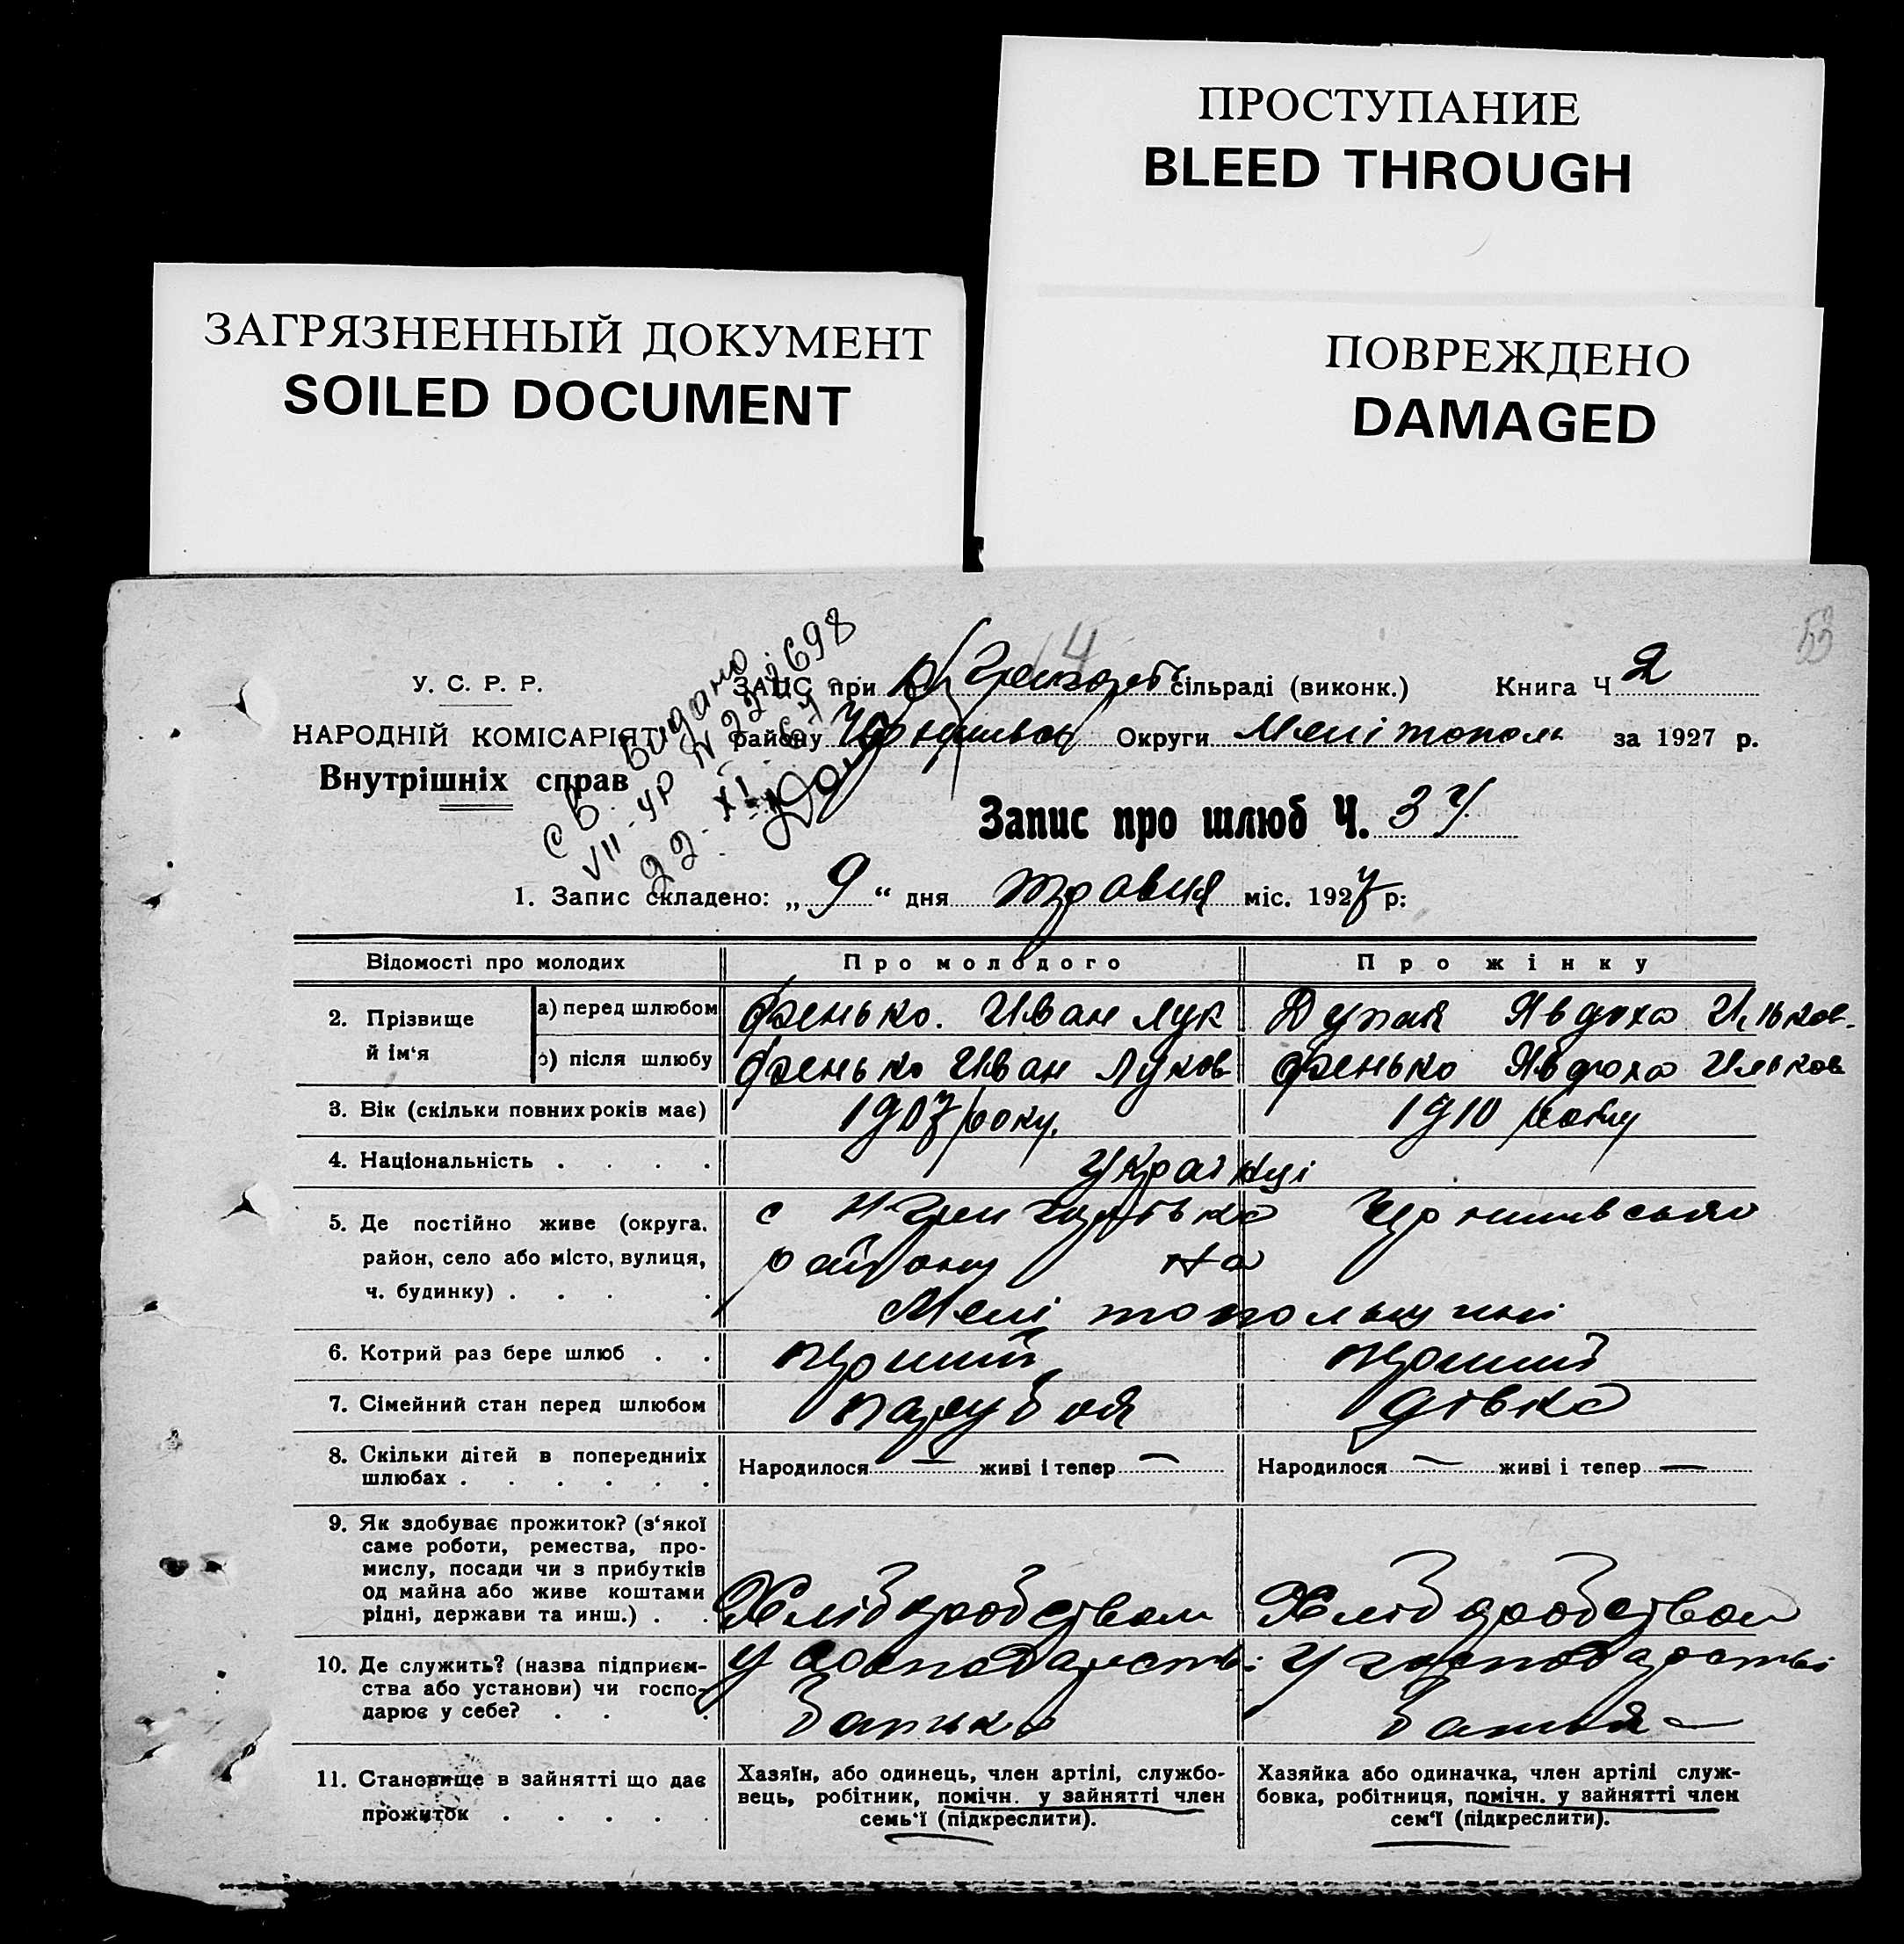 ПРОСТУПАНИЕ
BLEED THROUGH
ЗАГРЯЗНЕННЫЙ ДОКУМЕНТ
SOILED DOCUMENT
ПОВРЕЖДЕНО
DAMAGED
53
14
У. С. Р. Р.
НАРОДНІЙ КОМІСАРІЯТ
Внутрішніх справ
с в. Видано
VII-УР № 224698
22-XI-67
ЗАГС при сільраді (виконк.) Книга Ч 2
району Округи Мелітополь за 1927 р.
Запис про шлюб Ч. 37
1. Запис складено: „ 9 “ дня травня міс. 1927 р:
Відомості про молодих Про молодого Про жінку
2. Прізвище й ім‘я
а) перед шлюбом Фенько. Иван Лук Дупак Явдоха Ильков.
б) після шлюбу Фенько Иван Луков Фенько Явдоха Ильков
3. Вік (скільки повних років має) 1907 року. 1910 року
4. Національність . . . . украінці
5. Де постійно живе (округа, район, село або місто, вулиця, ч. будинку) . . . .
с
району на
Мелітопольщині
6. Котрий раз бере шлюб . . перший перший
7. Сімейний стан перед шлюбом парубок дівка
8. Скільки дітей в попередниіх шлюбах . . . . . .
Народилося — живі і тепер — Народилося — живі і тепер —
9. Як здобуває прожиток? (з‘якої
саме роботи, ремества, про-
мислу, посади чи з прибутків
од майна або живе коштами
рідні, держави та инш.) . .
Хліборобством Хліборобством
10. Де служить? (назва підприєм-
ства або установи) чи госпо-
дарює у себе? . . .
У господарстві У господарстві
батька батька
11. Становище в зайнятті що дає
прожиток . . . . .
Хазяїн, або одинець, член артілі, службо-
вець, робітник, помічн. у зайнятті член
семь‘ї (підкреслити).
Хазяйка або одиначка, член артілі служ-
бовка, робітниця, помічн. у зайнятті член
сем‘ї (підкреслити).